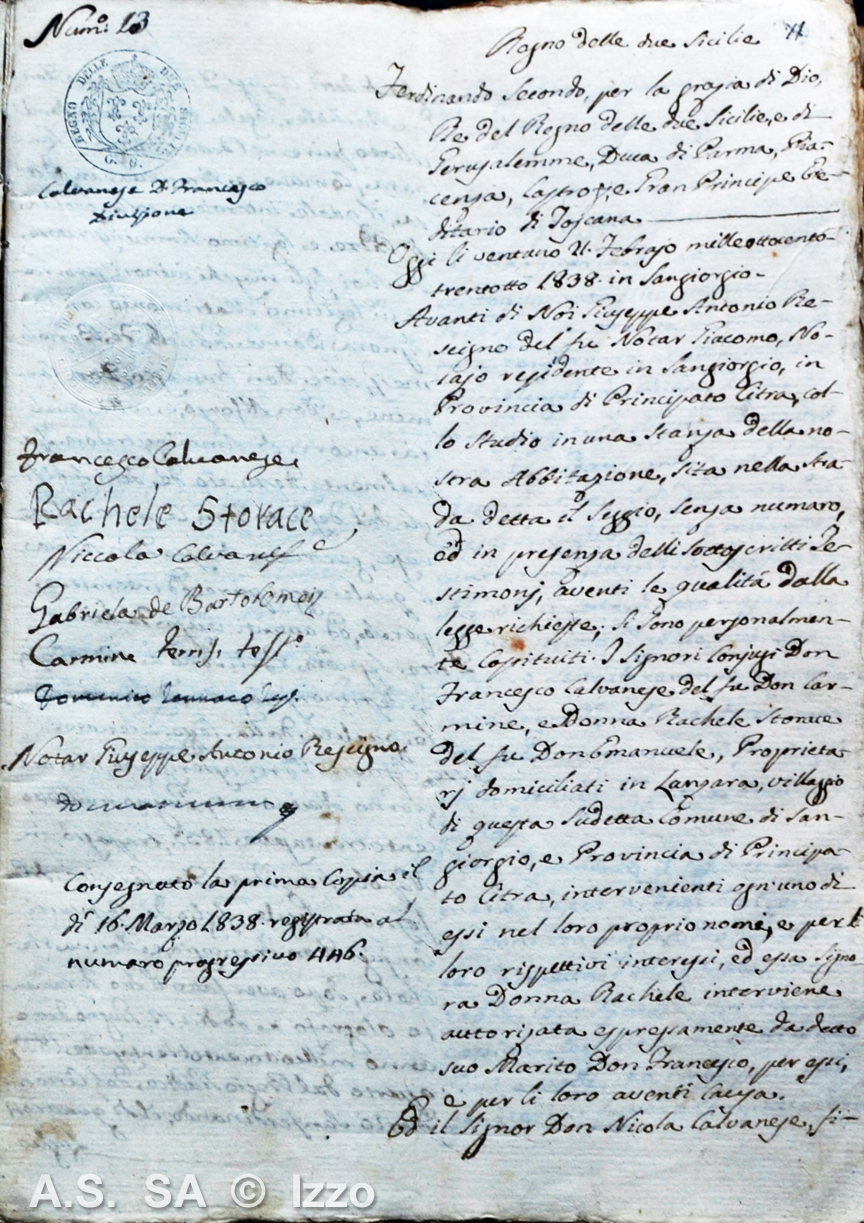 Num.° 13
REGNO DELLE DUE SICILIE
G. 6.
Calvanese D. Francesco
Divisione
Francesco Calvanese
Rachele Storace
Niccola Calvanese
Gabriela de Bartolomeis
Carmine test.°
Domenico
Notar Giuseppe Antonio Rescigno
Consegnato la prima Coppia il
dì 16. Marzo 1838. registrata al
numaro progressivo 446.
Regno delle due Sicilie
Ferdinando Secondo, per la grazia di Dio,
Re del Regno delle due Sicilie, e di
Gerusalemme, Duca di Parma, Pia-
cenza, Castro, e Gran Principe Ere-
ditario di Toscana
Oggi li ventuno 21. Febrajo milleottocento-
trentotto 1838. in Sangiorgio.
Avanti di Noi Giuseppe Antonio Re-
scigno del fu Notar Giacomo, No-
tajo residente in Sangiorgio, in
Provincia di Principato Citra, col-
lo Studio in una stanza della no-
stra Abbitazione, sita nella stra-
da detta il Seggio, senza numaro,
ed in presenza delli sottoscritti Te-
stimonj, aventi le qualità dalla
legge richieste; si sono personalmen-
te Costituiti. I Signori Conjugi Don
Francesco Calvanese del fu Don Car-
mine, e Donna Rachele Storace
del fu Don Emanuele, Proprieta-
rj domiciliati in Lanzara, villaggio
di questa sudetta Comune di San-
giorgio, e Provincia di Principa-
to Citra, intervenienti ogn'uno di
essi nel loro proprio nome, e per li
loro rispettivi interessi, ed essa Signo-
ra Donna Rachele interviene
auttorizata espressamente da detto
suo Marito Don Francesco, per essi,
e per li loro aventi causa.
Ed il Signor Don Nicola Calvanese, fi-
A.S. SA © Izzo